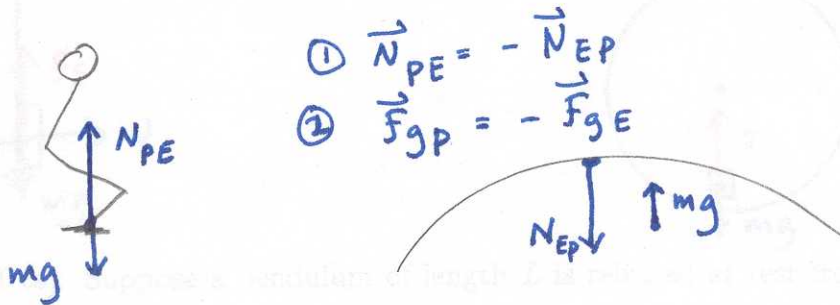 ① N⃗_PE = - N⃗_EP
② F⃗_gP = - F⃗_gE
N_PE
mg
N_Ep
mg
Suppose a pendulum of length L is